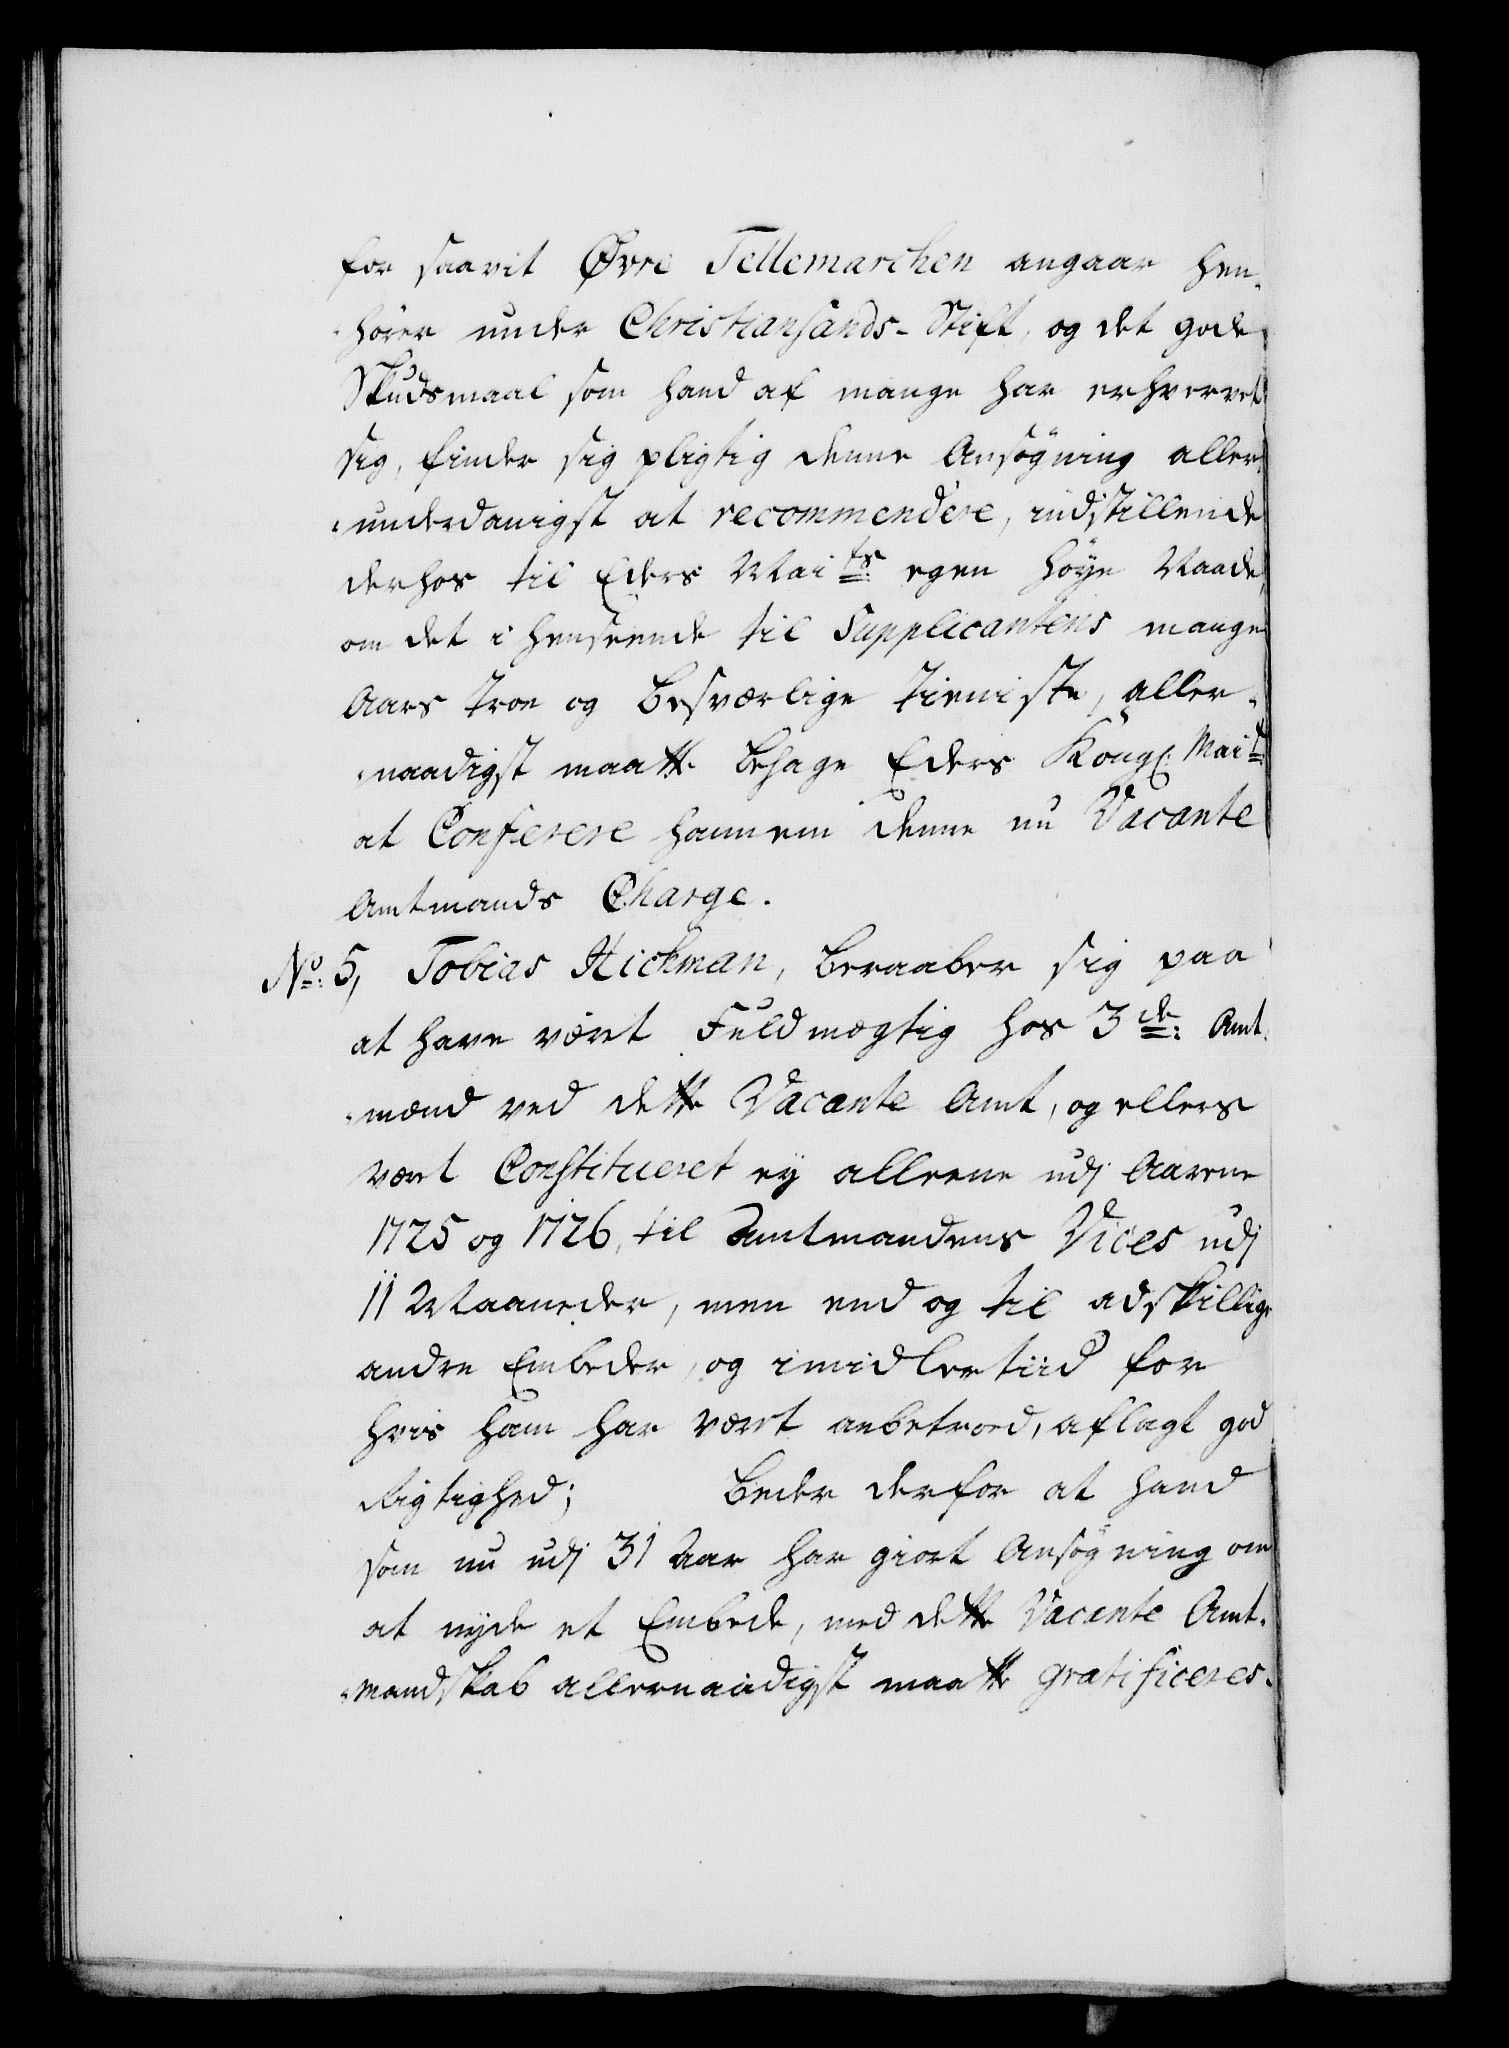 for saavit Øvre Tellemarchen angaar hen-
-hörer under Christiansands-Stift, og det gode
Skudsmaal som hand af mange har erhvervet
sig, finder sig pligtig denne Ansøgning aller-
-underdanigst at recommendere, indstillende
derhos til Eders Maits egen høye Naade,
om det i henseende til Supplicantens mange
Aars troe og besværlige tieniste, aller-
-naadigst maatte behage Eders Kongl: Mait
at Conferere hannem denne nu Vacante
Amtmands Charge.
No: 5, Tobias Hickman, beraaber sig paa
at have vært Fuldmægtig hos 3de: Amt-
-mænd ved dette Vacante Amt, og ellers
vært Constitueret ey alleene udj Aarene
1725 og 1726, til Amtmandens Vices udj
11 Maaneder, men end og til adskillige
andre Embeder, og imidlertiid for
hvis ham har vært anbetroed, aflagt god
Rigtighed; beder derfor at hand
som nu udj 31 Aar har giort Ansøgning om
at nyde et Embede, med dette Vacante Amt-
-mandskab allernaadigst maatte gratificeres.